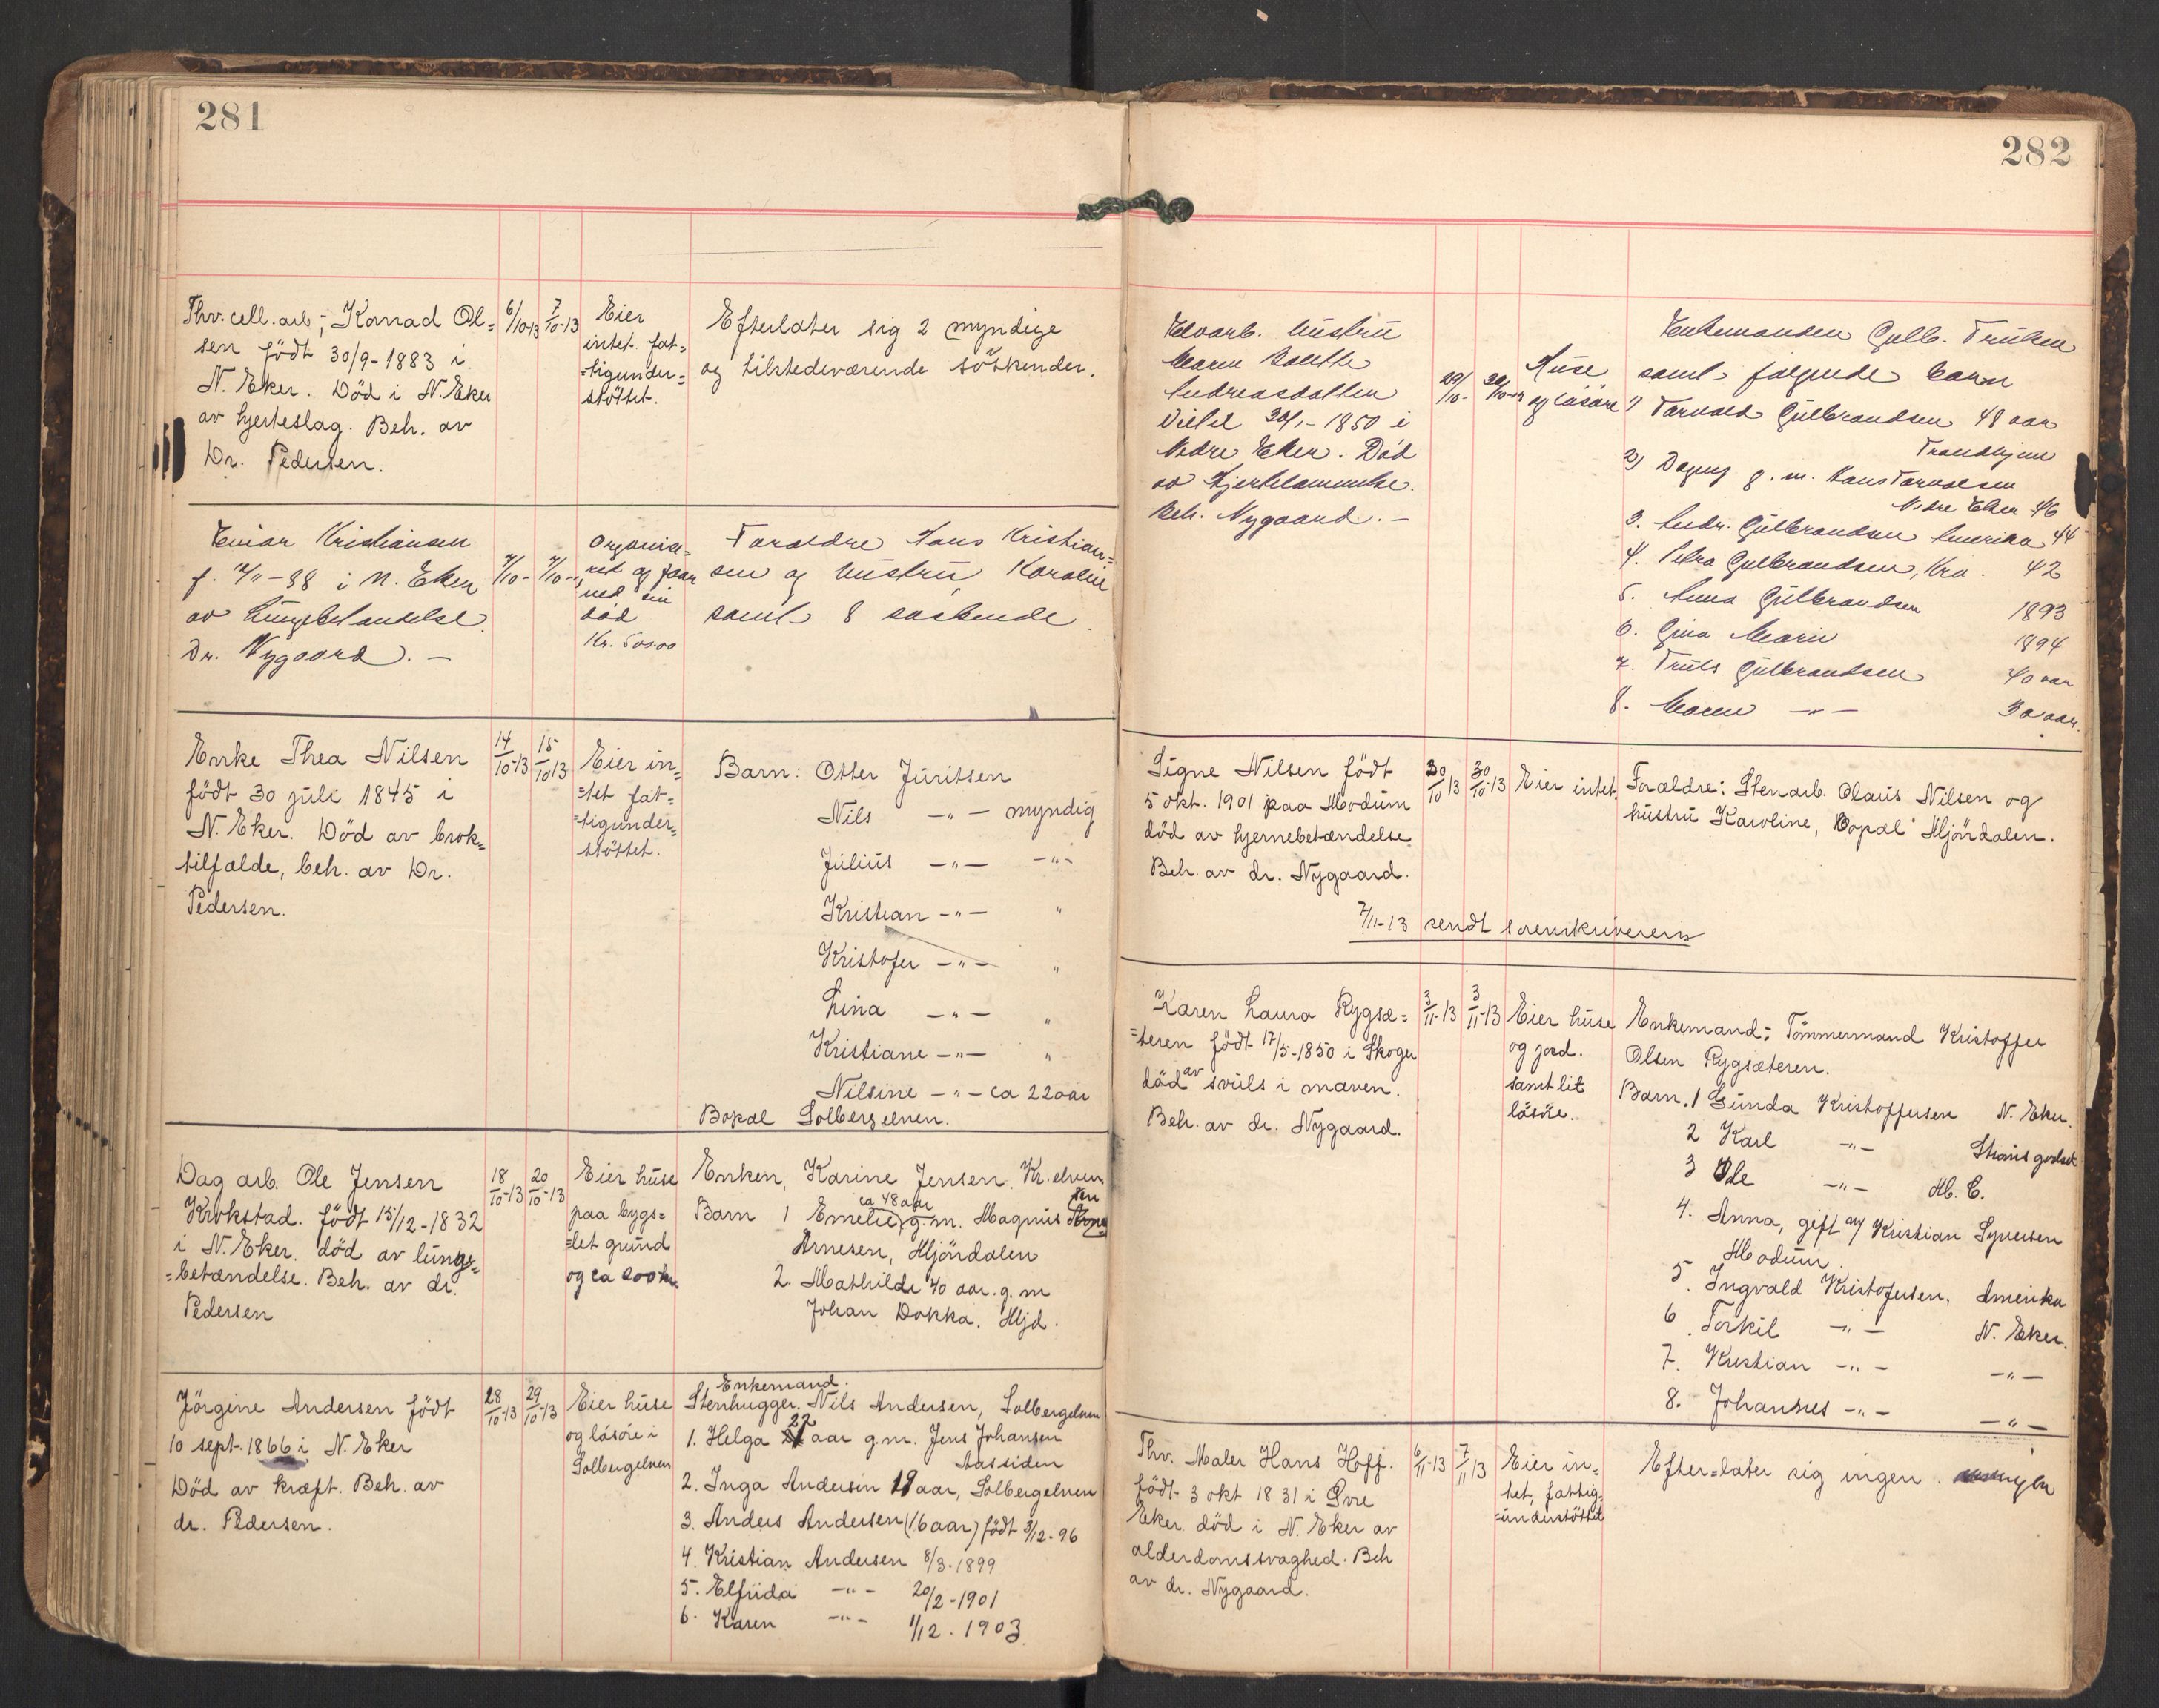 281
Thv. cell. arb, Konrad Ol=
sen født 30/9-1883 i
N. Eker. Död i N. Eker
av hjerteslag. Beh. av
Dr. Pedersen.
6/10-13
7/10-13
Eier
intet fat=
=tigunder=
støttet.
Efterlater sig 2 myndige
og tilstedeværende søskender.
Einar Kristiansen
i N. Eker
av Lungebetændelse
Dr. Nygaard. -
Organise=
ret og faar
ved sin
död
Kr. 500.00
Foraldre Hans Kristian=
sen og hustru Karolin
samt 8 søskende.
Enke Thea Nilsen
födt 30 juli 1845 i
N. Eker. Död av brok=
tilfalde, beh. av Dr.
Pedersen.
14/10-13
15/10 13
Eier in=
=tet fat=
=tigunder=
stöttet.
Barn: Otter Juritsen
Nils -"- myndig
Julius -"- -"-
Kristian -"- "
Kristofer -"- "
Lina -"- "
Kristiane -"- "
Nilsine -"- ca 22 aar
Bopæl Solbergelven.
Dag arb. Ole Jensen
Krokstad. födt 15/12-1832
i N. Eker. död av lunge=
=betændelse. Beh. av dr.
Pedersen
18/10-13
20/10-13
Eier huse
paa bygs=
=let grund
og ca 200 kr.
Enken, Karine Jensen, Kr. elven
ca 48 aar
Barn 1 Emelie, g.m. Magnus
Arnesen, Mjöndalen
2. Mathilde 40 aar. g.m
Johan Dokka. Mjd.
Jörgine Andersen födt
10 sept. 1866 i N. Eker
Död av kræft. Beh. av
dr. Pedersen.
28/10-13
29/10-13
Eier huse
og lösöre i
Solbergelven
Enkemand.
Stenhugger Nils Andersen, Solbergelven
1. Helga 22 aar g.m. Jens Johansen
Aassiden
2. Inga Andersen 19 aar, Solbergelven
3. Anders Andersen (16 aar) födt 3/12-96
4. Kristian Andersen 8/3-1899
5. Elfrida -"- 20/2-1901
6. Karen -"- 1/12. 1903
282
Elvarb. hustru
Maren
Andreasdatter
1850 i
Nedre Eker. Död
av Hjertelammelse.
Beh. Nygaard. -
29/10-
Huse
og lösöre
Enkemanden Gulb. Trulsen
samt følgende barn
1) Torvald Gulbrandsen 48 aar
Trondhjem
2) Dagny g.m. Hans
Nedre Eker 46
3. Andr. Gulbrandsen Amerika 44
4. Petra Gulbrandsen, Kra. 42
5. Anna Gulbrandsen 1893
6. Gina Marie 1894
7. Truls Gulbrandsen 40 aar
8. Maren -"- 30 aar.
Signe Nilsen födt
5 okt. 1901 paa Modum
död av hjernebetændelse
Beh. av dr. Nygaard.
30/10 13
30/10-13
Eier intet.
Forældre: Stenarb. Olaus Nilsen og
hustru Karoline, Bopæl Mjöndalen.
7/11-13 sendt sorenskriveren
Karen Laura Rygsæ=
=teren födt 17/5-1850 i Skoger
död av svuls i maven.
Beh. av dr. Nygaard.
3/11-13
3/11-13
Eier huse
og jord.
samt lit
lösöre.
Enkemand: Tömmermand Kristoffer
Olsen Rygsæteren.
Barn. 1 Gunda Kristoffersen N. Eker.
2 Karl -"- Strömsgodset
3 Ole -"- M. E.
4. Anna, gift m/ Kristian Syversen
Modum.
5. Ingvald Kristofersen, Amerika
6. Torkil -"- N. Eker.
7. Kristian -"- -"-
8. Johannes -"- -"-
Thv. Maler Hans Hoff.
födt 3 okt 1831 i Övre
Eker. död i N. Eker av
alderdomssvaghed. Beh
av dr. Nygaard.
6/11-13
7/11 13
Eier in=
tet, fattig=
=understöttet
Efter=later sig ingen.